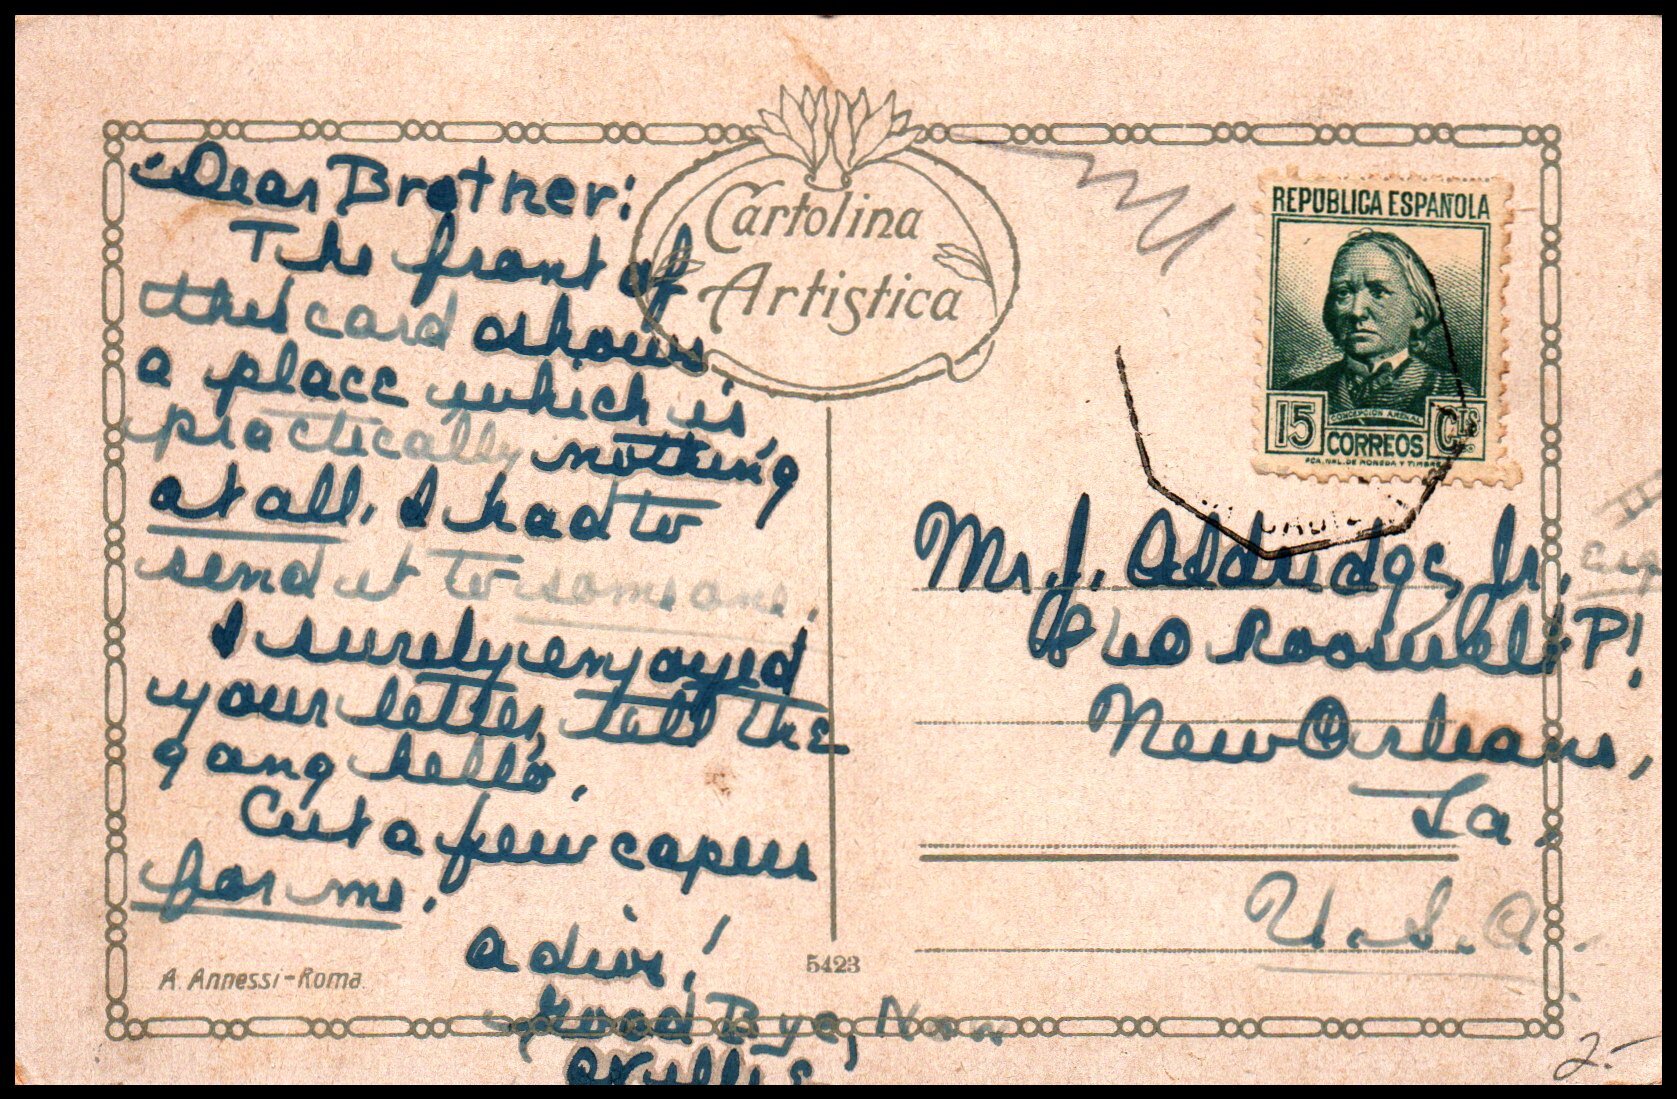 Dear Brother:
The front of
this card shows
a place which is
practically nothing
at all. I had to
send it to someone.
I surely enjoyed
your letter, tell the
gang hello.
Cut a few capers
for me.
adios!
Good Bye, Now
Cartolina
Artistica
REPÚBLICA ESPAÑOLA
15 CTS
CONCEPCION ARENAL
CORREOS
FCA. NAL. DE MONEDA Y TIMBRE
Mr. J. Aldridge, Jr.
Roosevelt Pl
New Orleans,
La.
U.S.A.
A. Annessi-Roma
5423
2.-